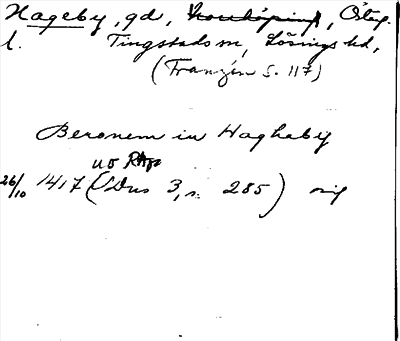 Hageby, gd, Norrköping, Östg.
l. Tingstads sn, Lösings hd,
(Franzén s. 117)
Beronem in Haghaby
uo RApp
26/10 1417 (SDns 3, s. 285) orig